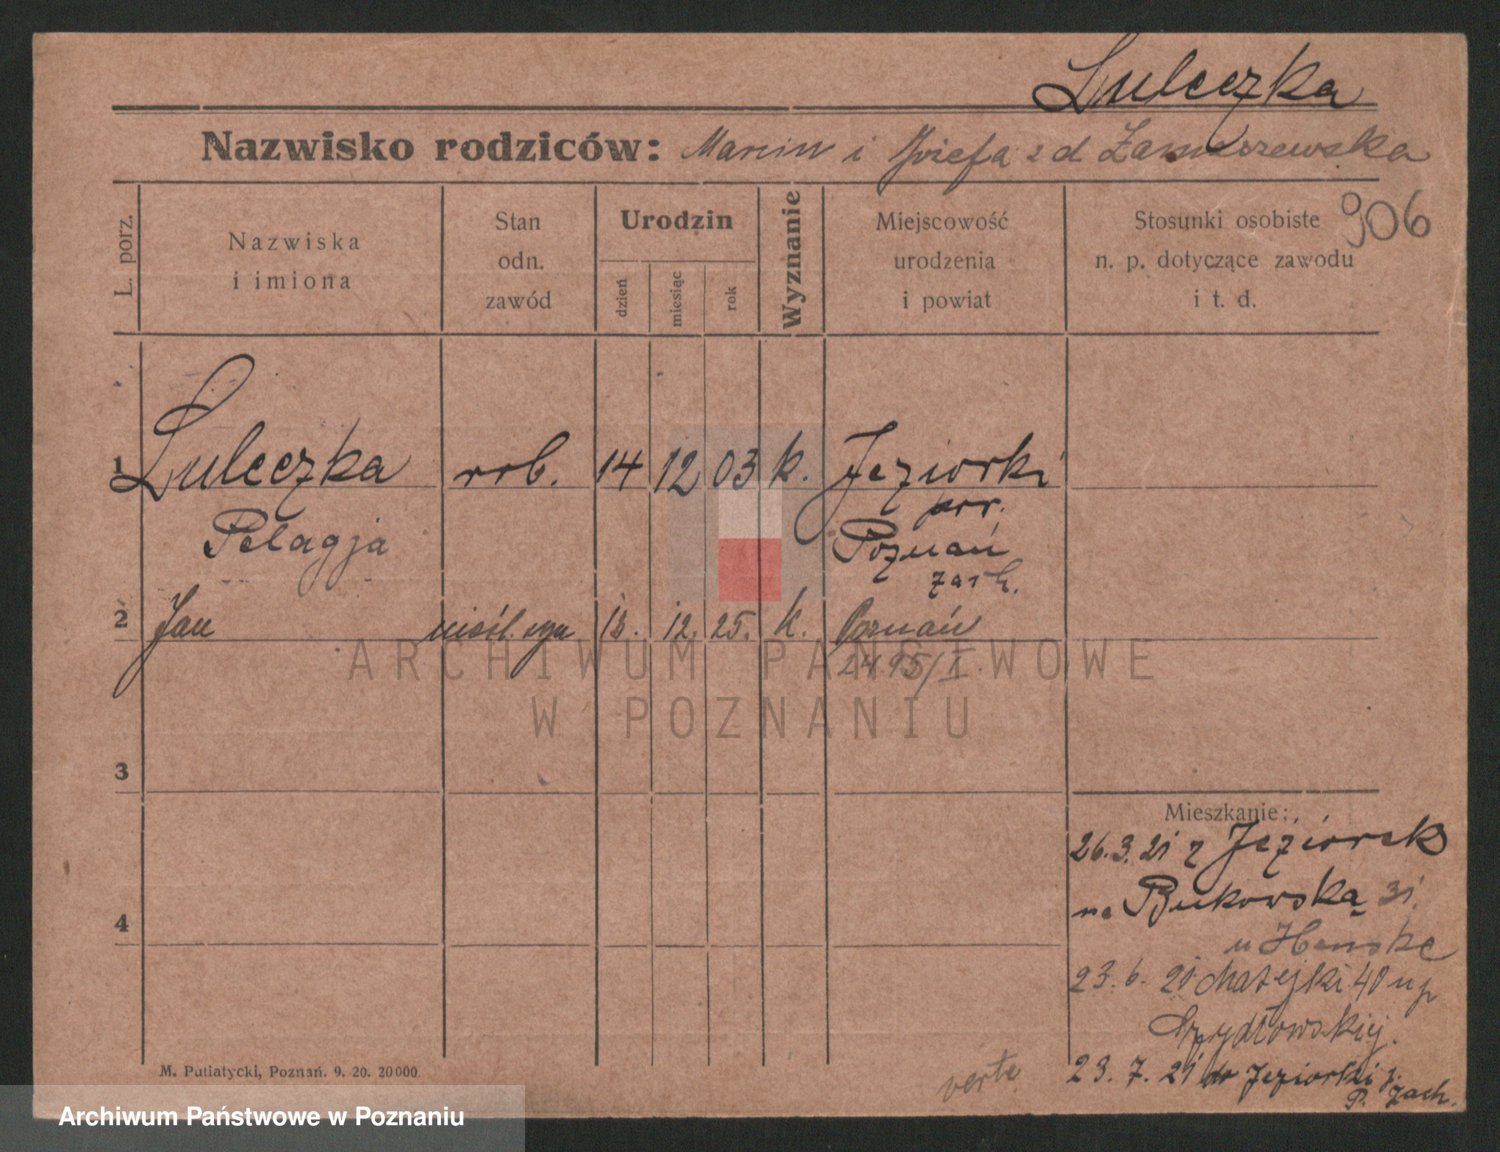 Luleczka
Nazwisko rodziców: Marcin i Józefa z d
906
L. porz.
Nazwiska
i imiona
Stan
odn.
zawód
Urodzin
dzień
miesiąc
rok
Wyznanie
Miejscowość
urodzenia
i powiat
Stosunki osobiste
n. p. dotyczące zawodu
i t. d.
1 Luleczka rob. 14 12 03 k. Jeziorki
pow.
Pelagja Poznań
zach.
2 Jan nieśl. syn 12. 25. k. Poznań
2495/I.
3
4
Mieszkanie:
26.3.21 z Jeziorek
na Bukowską 31.
u
23.6.21 Matejki 40 u p
Szydłowskiej.
23.7.21 do Jeziorki
P. zach.
verte
M. Putiatycki, Poznań. 9. 20. 20000.
ARCHIWUM PAŃSTWOWE
W POZNANIU
Archiwum Państwowe w Poznaniu